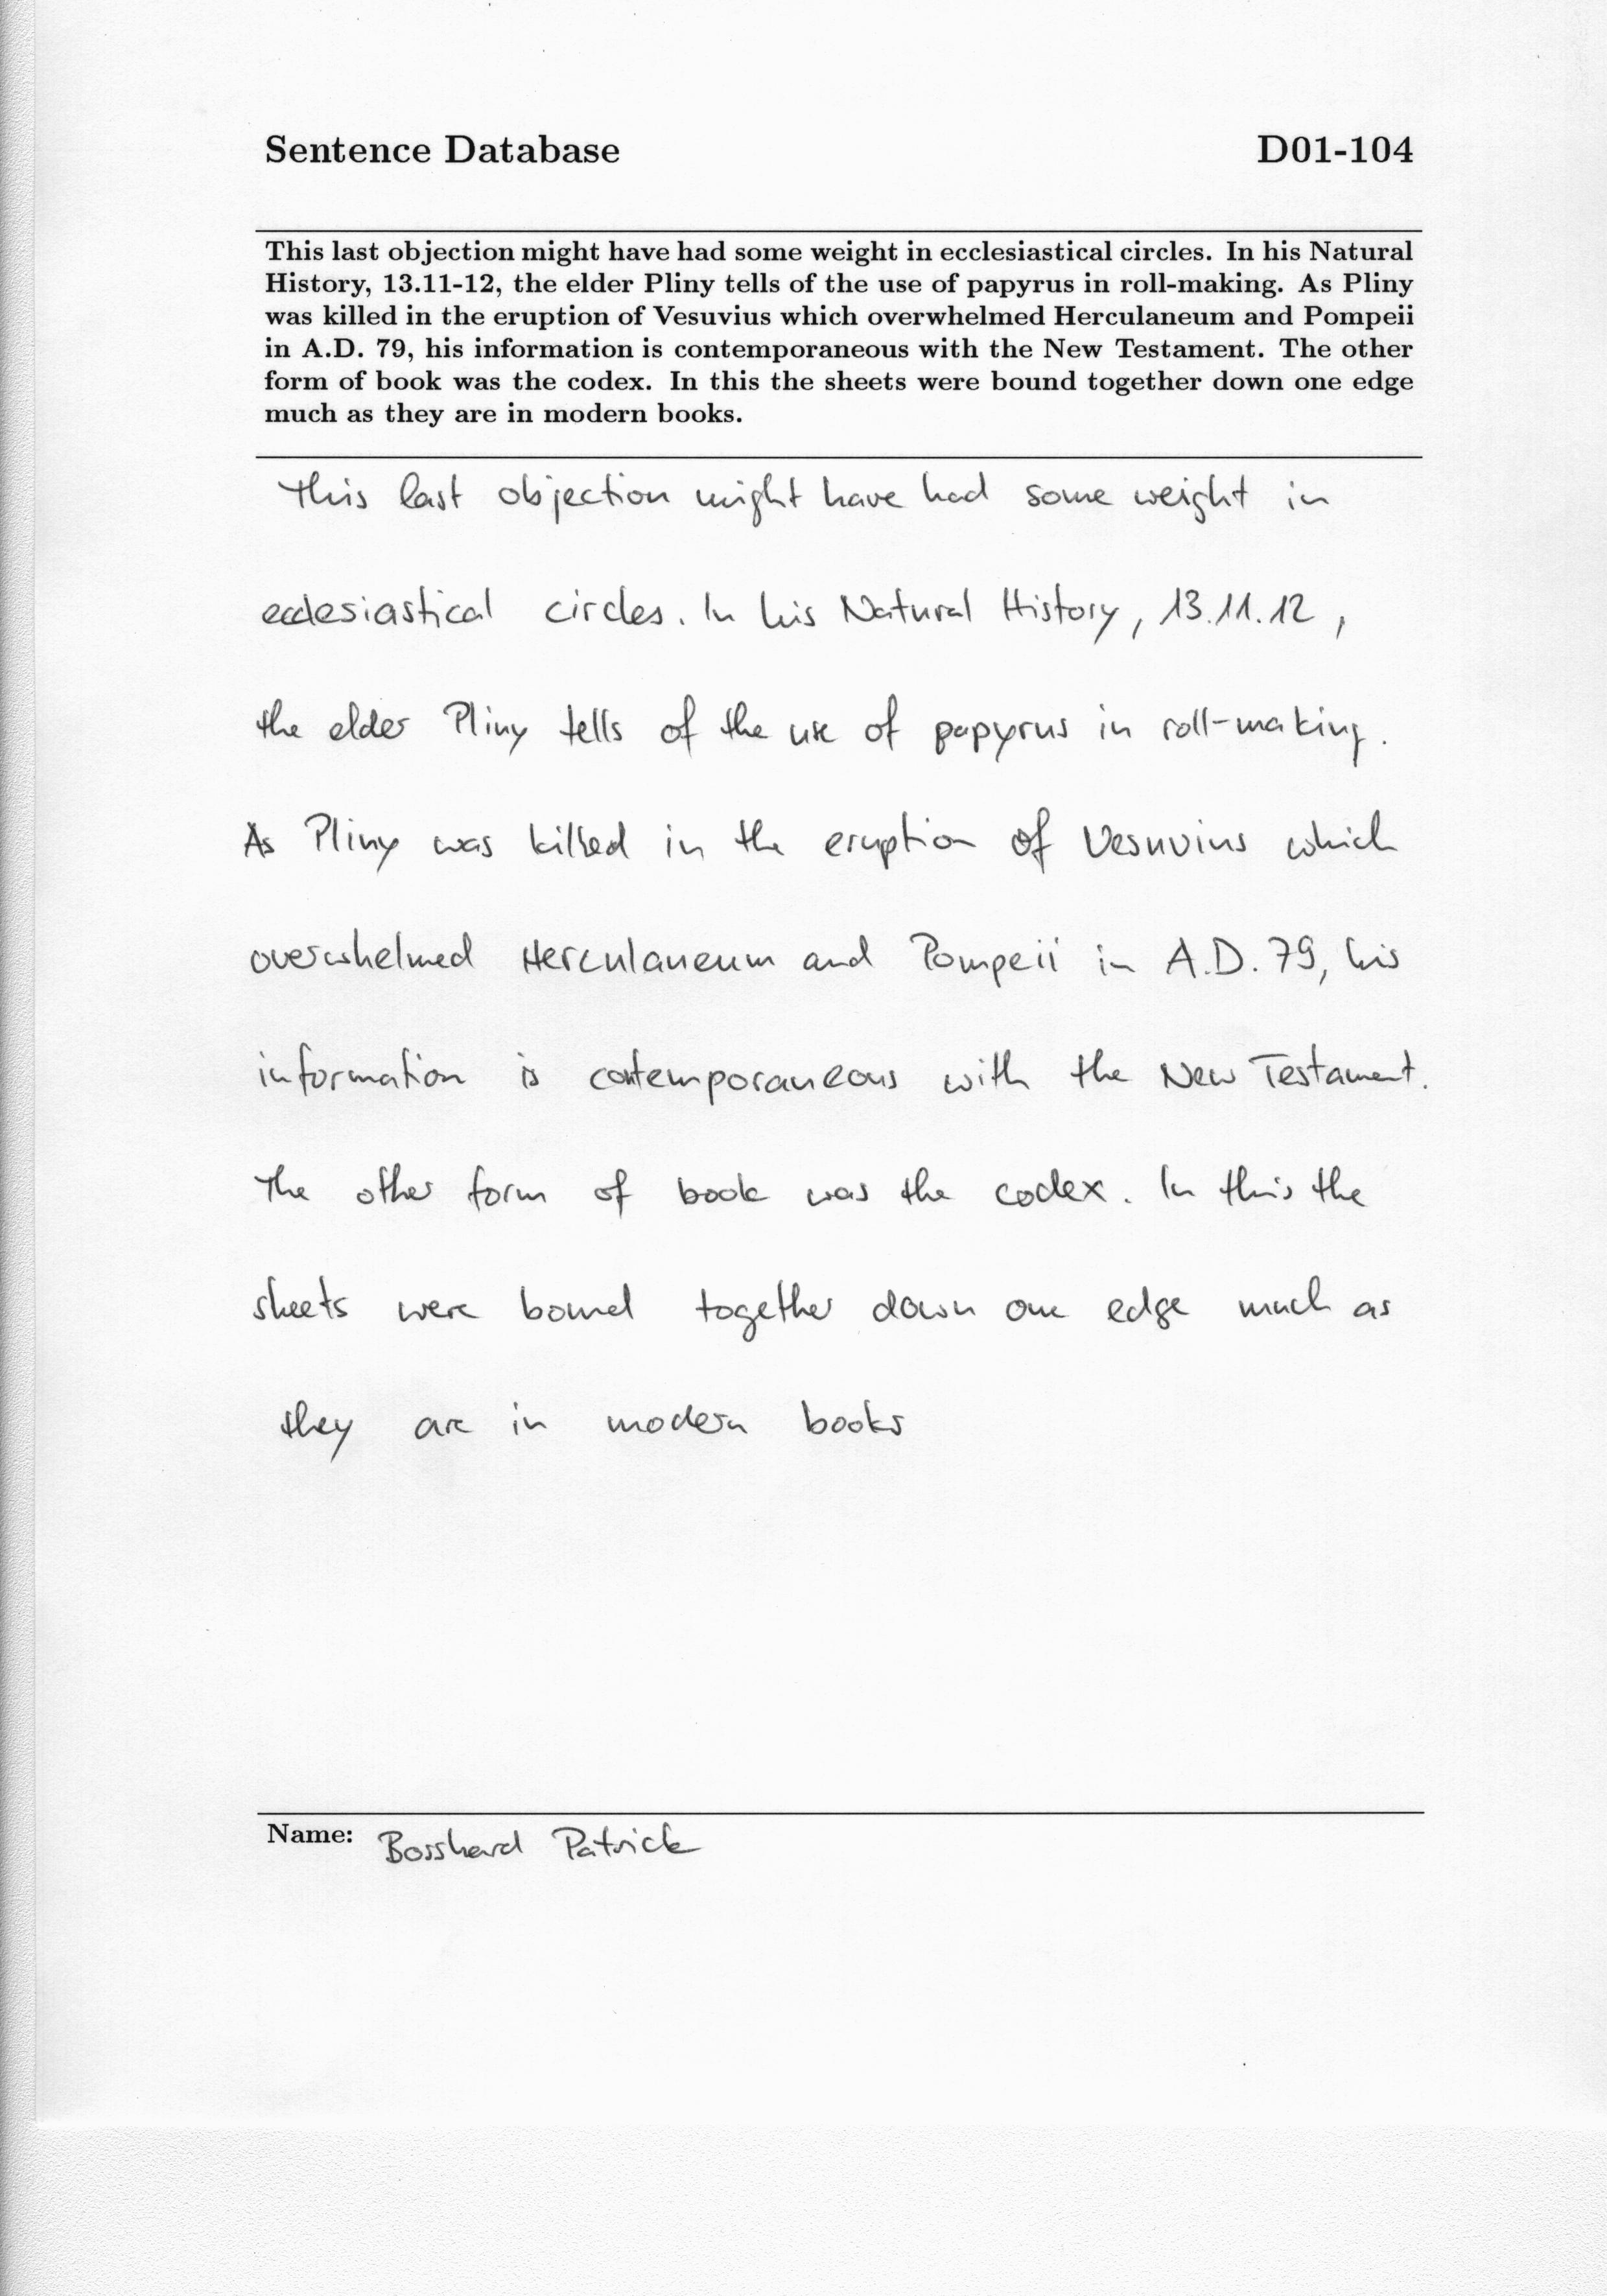 Sentence Database D01-104
This last objection might have had some weight in ecclesiastical circles. In his Natural
History, 13.11-12, the elder Pliny tells of the use of papyrus in roll-making. As Pliny
was killed in the eruption of Vesuvius which overwhelmed Herculaneum and Pompeii
in A.D. 79, his information is contemporaneous with the New Testament. The other
form of book was the codex. In this the sheets were bound together down one edge
much as they are in modern books.
This last objection might have had some weight in
ecclesiastical circles. In his Natural History, 13.11.12,
the elder Pliny tells of the use of papyrus in roll-making.
As Pliny was killed in the eruption of Vesuvius which
overwhelmed Herculaneum and Pompeii in A.D. 79, his
information is contemporaneous with the New Testament.
The other form of book was the codex. In this the
sheets were bound together down one edge much as
they are in modern books
Name: Bosshard Patrick